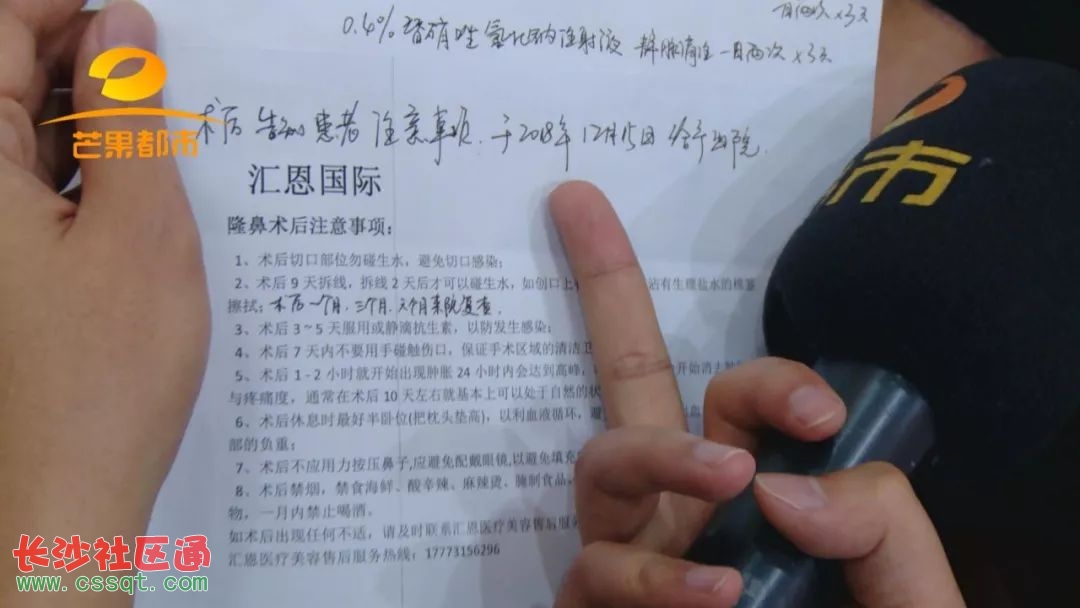 月四次 x3天
0.4%替硝唑氯化钠注射液 静脉滴注 一日两次 x3天
术后告知患者注意事项.于2018年12月15日给予出院.
芒果都市
市
汇恩国际
隆鼻术后注意事项:
1、术后切口部位勿碰生水，避免切口感染；
2、术后9天拆线，拆线2天后才可以碰生水，如创口上 沾有生理盐水的棉签
擦拭；术后一个月.三个月.六个月来院复查.
3、术后3~5天服用或静滴抗生素，以防发生感染；
4、术后7天内不要用手碰触伤口，保证手术区域的清洁卫
5、术后1-2小时就开始出现肿胀24小时内会达到高峰， 开始消去
与疼痛度，通常在术后10天左右就基本上可以处于自然的状
6、术后休息时最好半卧位(把枕头垫高)，以利血液循环，避
部的负重；
7、术后不应用力按压鼻子,应避免配戴眼镜,以避免填充
8、术后禁烟，禁食海鲜、酸辛辣、麻辣烫、腌制食品、
物，一月内禁止喝酒。
如术后出现任何不适，请及时联系汇恩医疗美容售后服务
汇恩医疗美容售后服务热线：17773156296
长沙社区通
www.cssqt.com